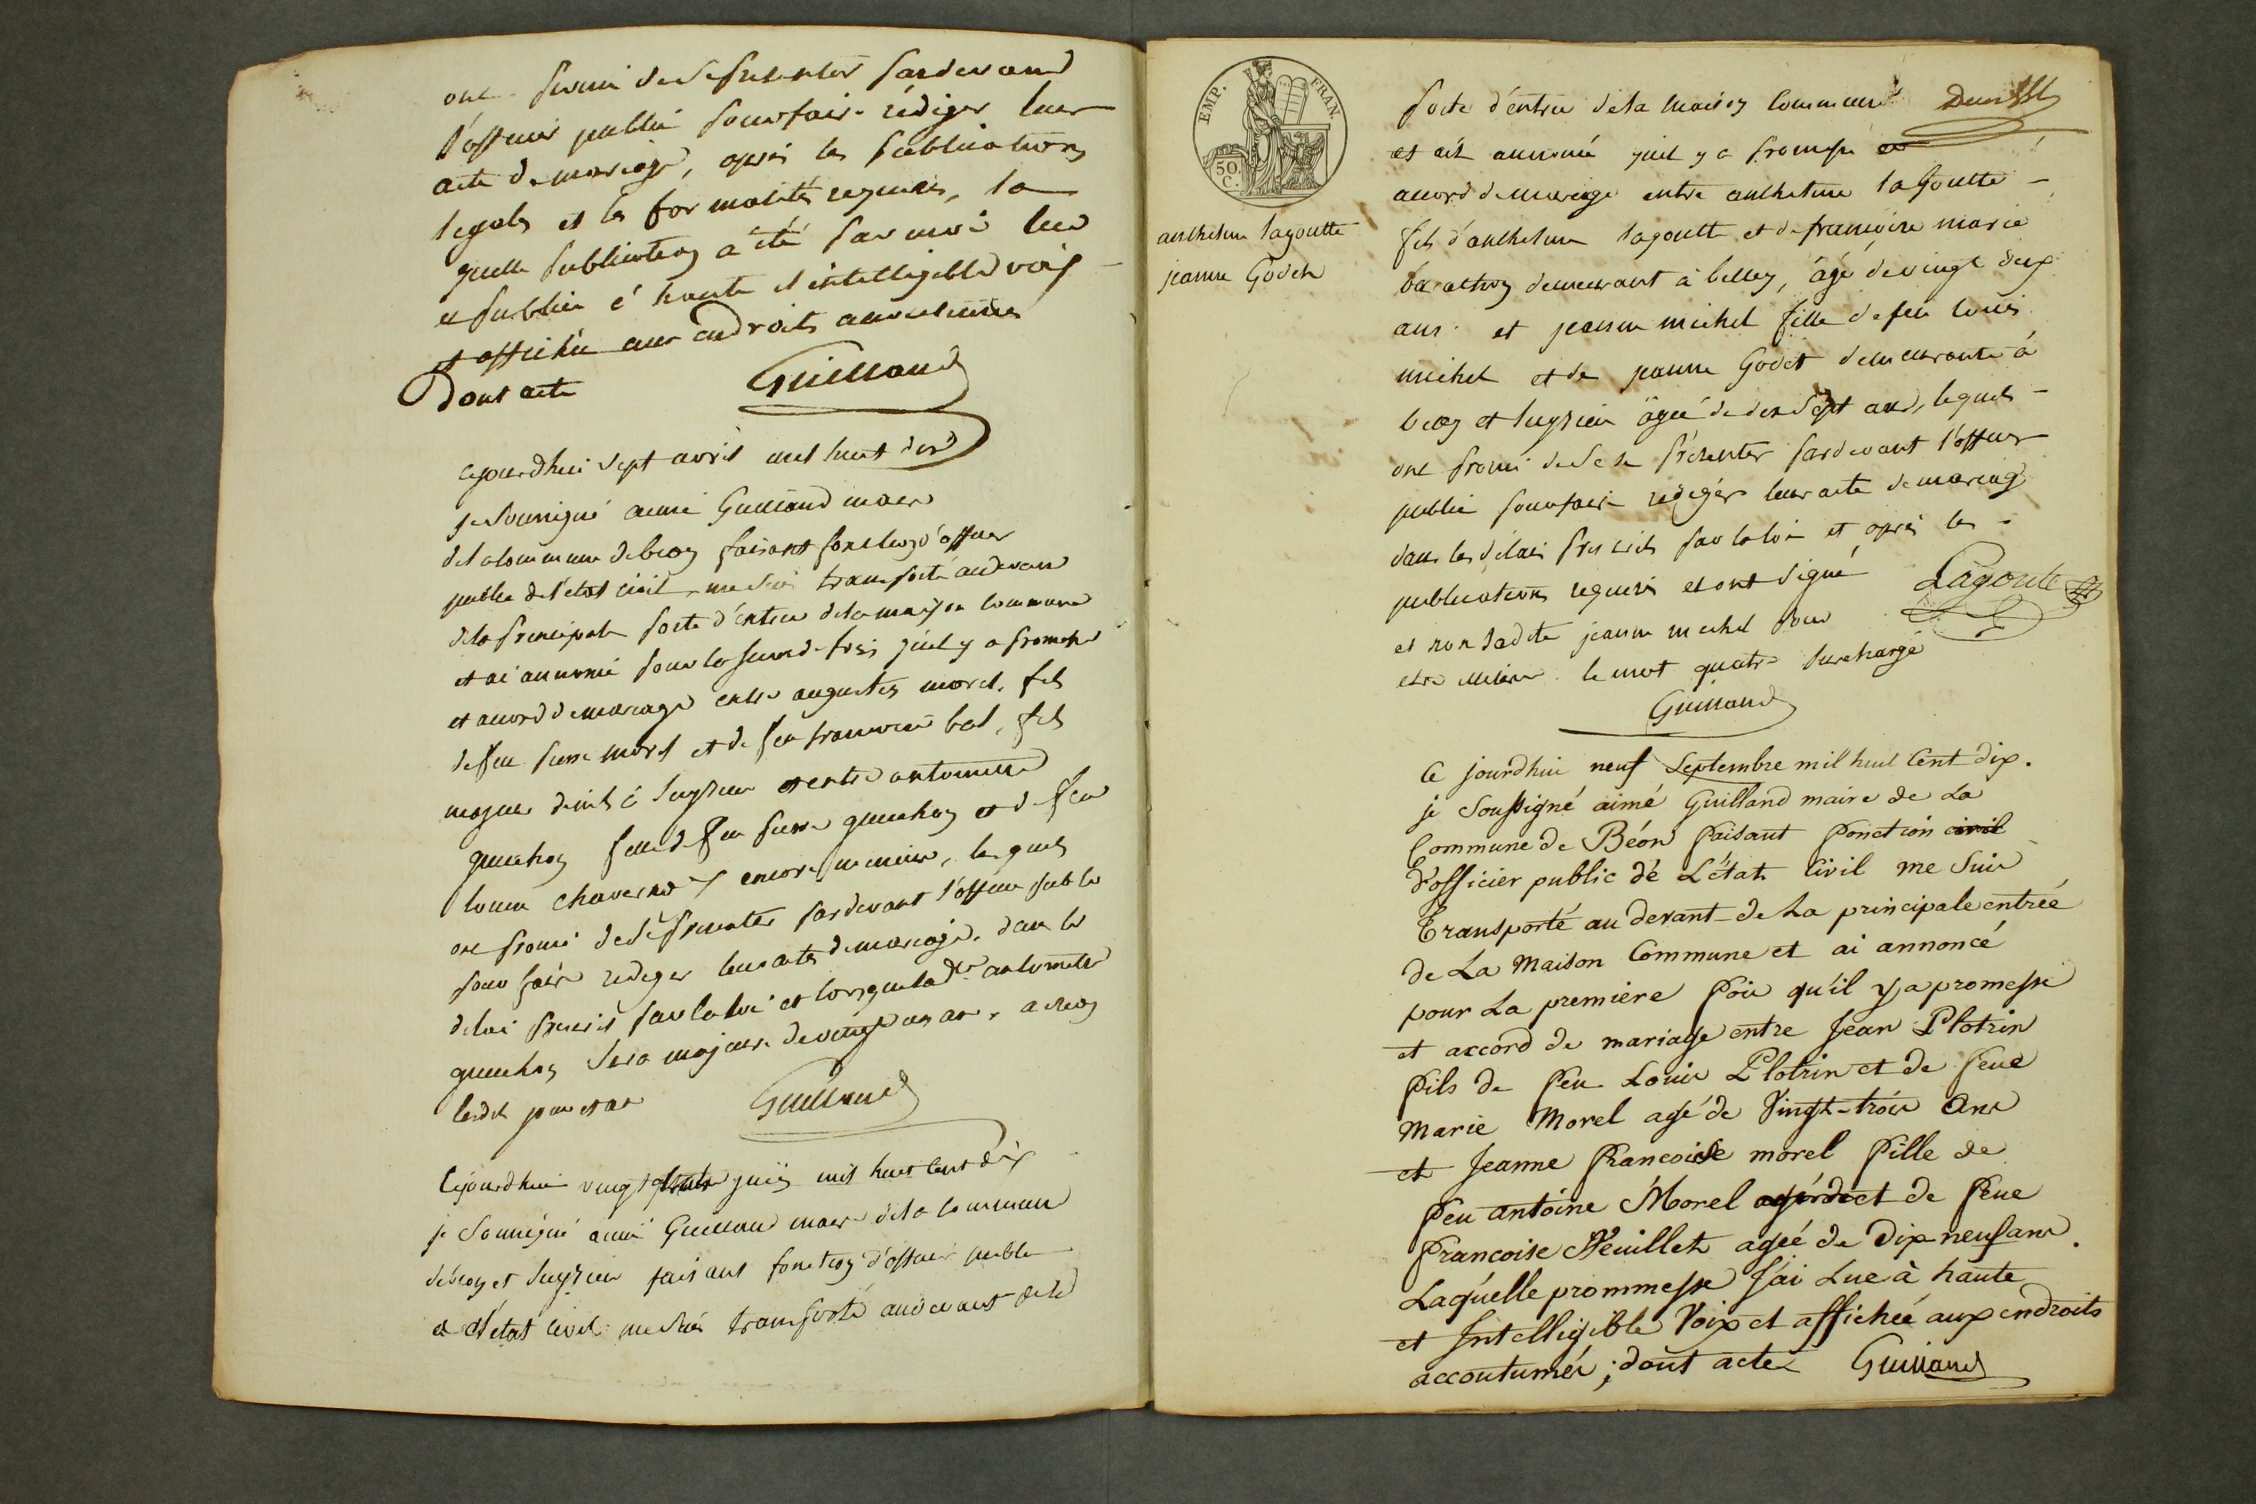 ont promi de se presenter par devand
l'officier public pour faire rédiger leur
acte de mariage, aprés les publications
legales et les formalités requises, la
quelle publication a été par moi lue
et publiée à haute et intelligible voix
et affichée aux endroits accoutumés
Dont acte Guilland
cejourdhui sept avril mil huit dix
je soussigné aimé Guilland maire
de la commune de beon faisant fonction d'officier
public de l'état civil, me suis transporté au devant
de la principale porte d'entrée de la maison commune
et ai annoncé pour la seconde fois qu'il y a promesse
et accord de mariage entre augustin morel, fils
de feu pierre morel et de feu francoise bal, fils
majeur à luyrieu et entre antoinette
fille de feu pierre et de feu
encore mineure, lesquels
ont promi de se presenter par devant l'officier public
pour faire rediger leur acte de mariage, dans le
delai prescrit par la loi et lorsque la dte antoinette
sera majeure de vingt un an, a beon
lesdit jour et an Guilland
Cejourdhui vingt quatre juin mil huit cent dix
je soussigné aimé Guilland maire de la commune
de beon et luyrieu faisant fonction d'officier public
de l'état civil me suis transporté au devant de la
EMP. FRAN.
50. C.
anthelme lagoutte
jeanne Godet
porte d'entrée de la maison commune
et ait annoncé quil y a promesse et
accord de mariage entre anthelme lagoutte
fils d'anthelme lagoutte et de françoise marie
demeurant à belley, âgé de vingt deux
ans et jeanne michel fille de feu louis
michel et de jeanne Godet demeurante à
beon et luyrieu âgée de dix sept ans, lequels
ont promi de se presenter pardevant l'officier
public pour faire rediger leur acte de mariage
dans les délais prescrits par la loi et aprés les
publications requises et ont signé Lagoute
et non ladite jeanne michel pour
etre illitere le mot quatre surchargé
Guilland
Ce jourdhui neuf Septembre mil huit Cent dix.
je Soussigné aimé Guilland maire de La
Commune de Béon faisant fonction civil
d'officier public dé L'état Civil me Suis
Transporté au devant de La principale entrée
de La Maison Commune et ai annoncé
pour La premiere fois qu'il y a promesse
et accord de mariage entre Jean Plotrin
fils de feu Louis Plotrin et de feue
Marie Morel agé de Vingt-trois ans
et Jeanne francoise morel fille de
feu antoine Morel et de feue
francoise Neuillet agée de Dix neuf ans.
Laquelle prommesse J'ai Lue à haute
et Intelligible Voix et affichée aux endroits
accoutumés; dont acte Guilland